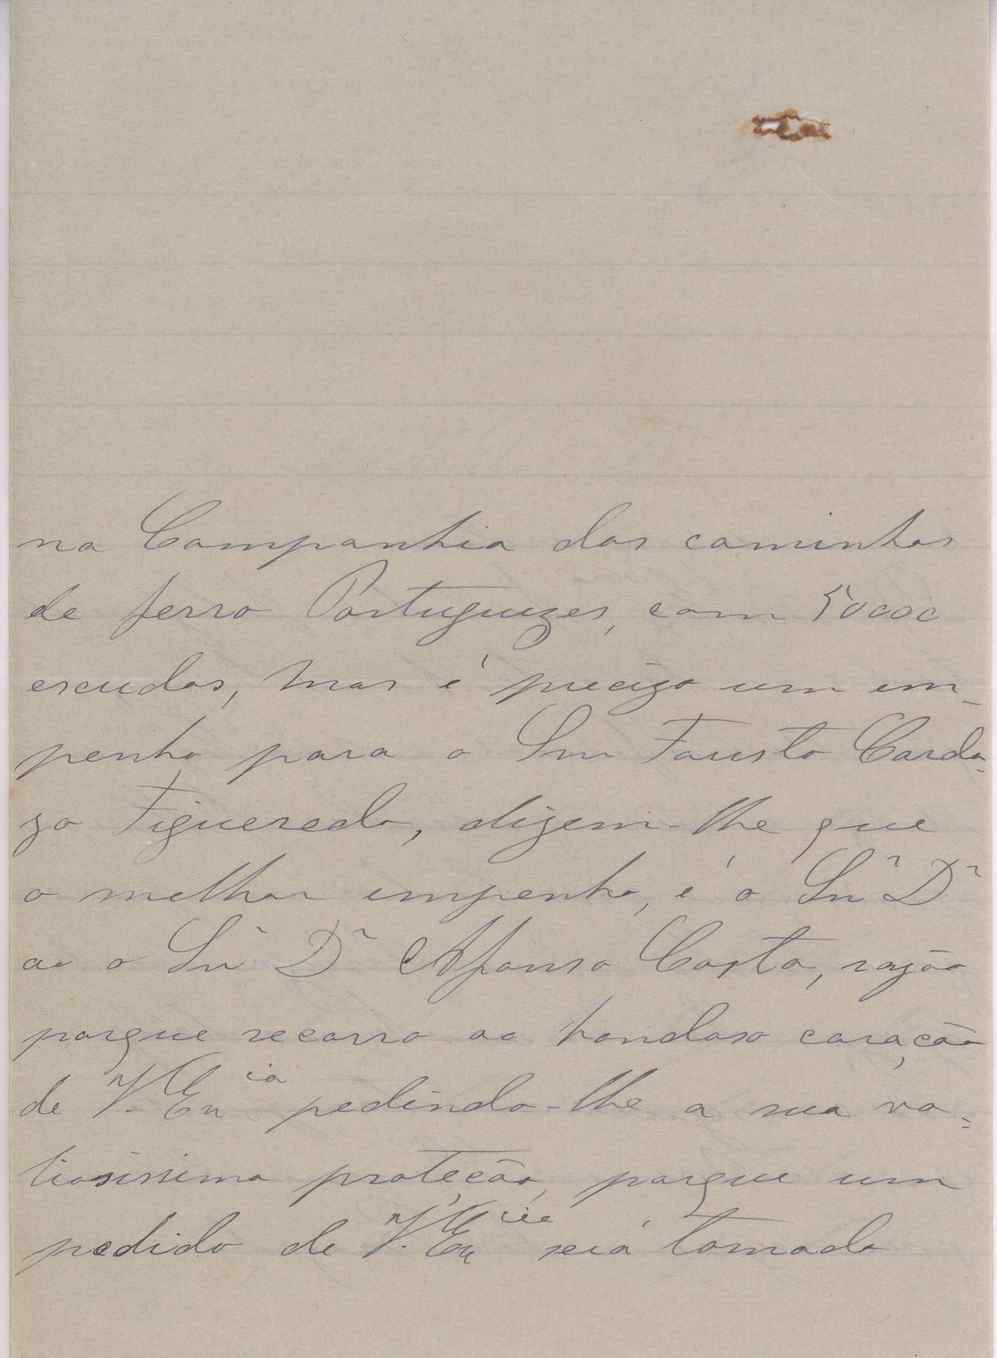 na Companhia dos caminhos
de ferro Portuguezes, com 50000
escudos, mas é precizo um em-
penho para o Snr Fausto Cardo-
zo Figueredo, dizem-lhe que
o melhor empenho, é o Snr Dr
ao o Snr Dr Afonso Costa, razão
porque recorro ao bondoso coração
de V. Excia pedindo-lhe a sua va-
liosissima proteção, porque um
pedido de V. Excia será tomado